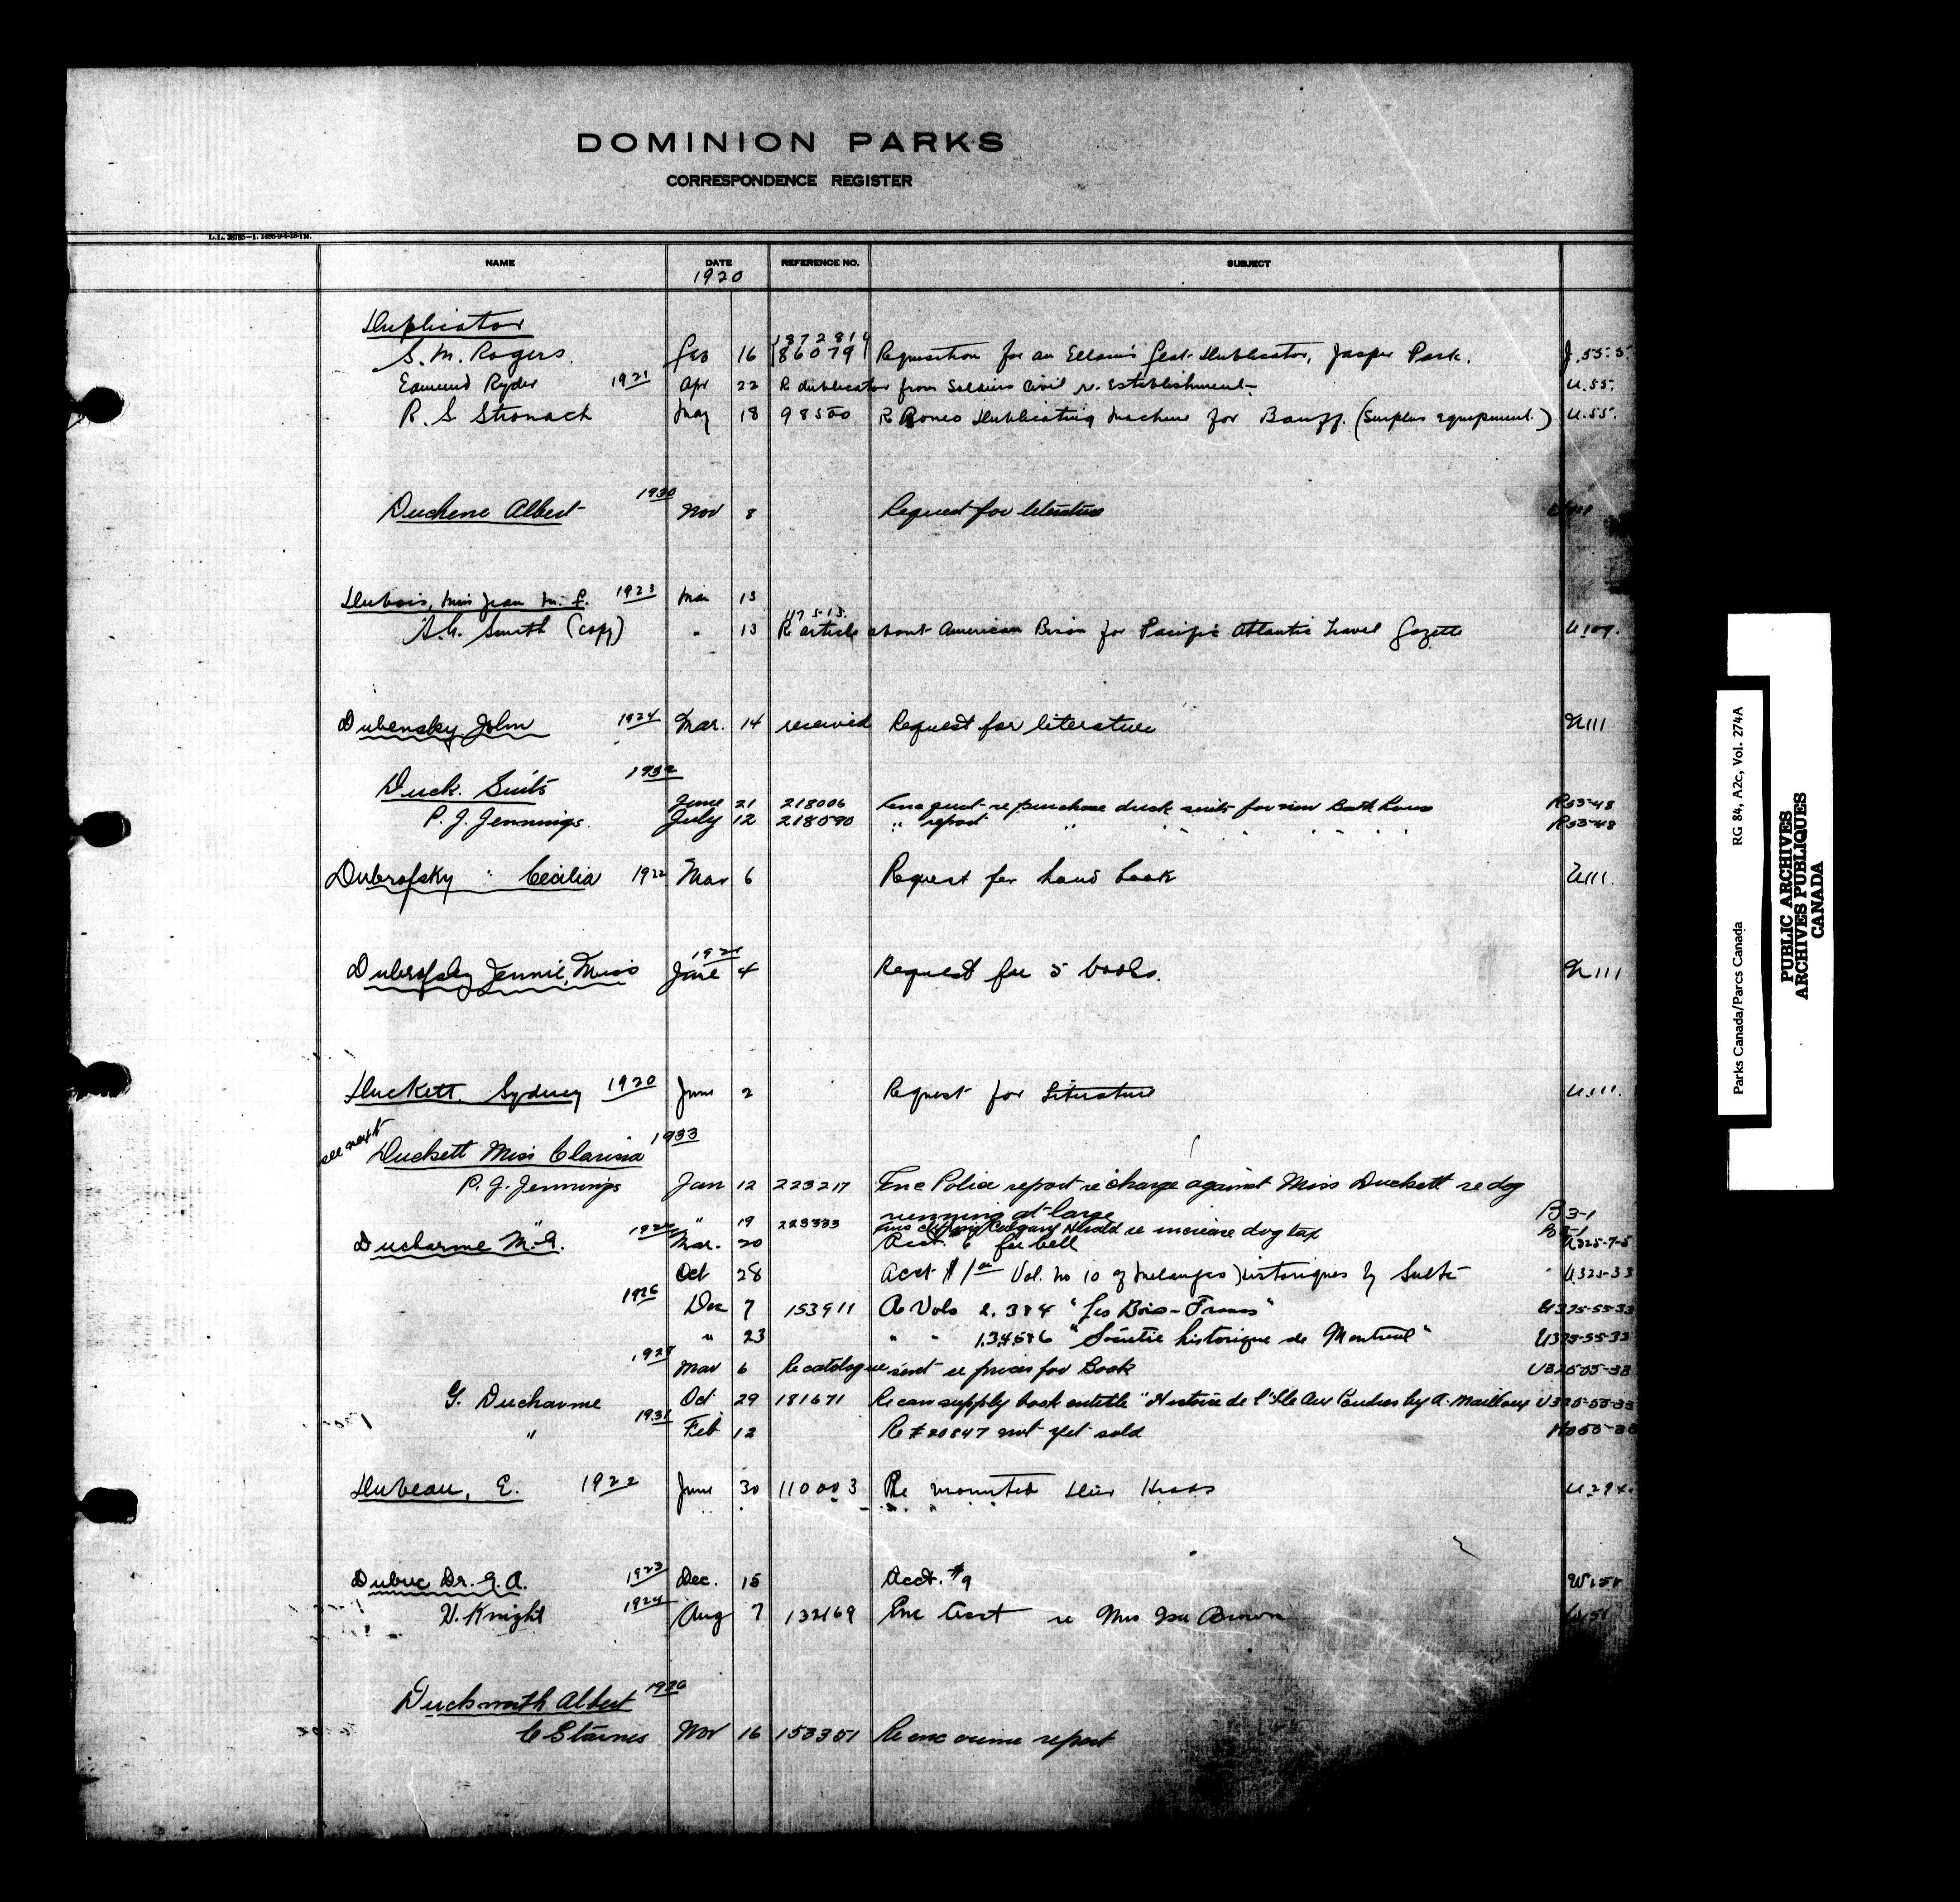 DOMINION PARKS
CORRESPONDENCE REGISTER
NAME DATE REFERENCE NO. SUBJECT
1920
Duplicator
S. M. Rogers. Feb 16 86079 Requisition for an Duplicator, Jasper Park. J.55.5
Edmund Ryder 1921 Apr 22 R duplicator from Soldiers Civil r. Establishment U.55.
R. S. Stronach May 18 98500 R Roneo Duplicating Machine for Banff. (Surplus equipment.) U.55.
1930
Duchene Albert Nov 8 Request for literature
Dubois, Miss Jean M. 1923 Mar 13
1175-13.
(copy) " 13 R article about American Bison for Pacific Atlantic Travel Gazette U109.
Dubensky John 1924 Mar. 14 received Request for literature U111
Duck. Suits 1932
June 21 218006 re purchase duck suits for new Bath House R53-48
P. J. Jennings. July 12 218590 " report " " " " " " R53-48
Dubrofsky Cecilia 1922 Mar 6 Request for hand book U111.
Dubrofsky Jennie, Miss June 4 Request for 5 books. U111
Duckett, Sydney 1920 June 2 Request for Literature U.111.
see next
Duckett Miss Clarissa 1933
P. J. Jennings Jan 12 223217 Enc Police report re charge against Miss Duckett re dog
running at large B3-1
" " 19 223333 Enc clipping Calgary Herald re increase dog tax B3-1
Ducharme M. G. Mar. 20 Acct. 6 for bell U325-7-5
Oct 28 Acct \$1.00 Vol. No 10 of Melanges Historiques by Sulte U325-33
1926 Dec 7 153911 Re Vols 2. 3 & 4 "Les Bois-Francs" U325-55-33
" 23 " " 1.3.4.5 & 6 "Societie historique de Montreal" U325-55-33
Mar 6 Re catalogue sent re prices for Book U325-55-33
G. Ducharme Oct 29 181671 Re can supply book entitle "Histoire de l'Ile Aux Coudres by A. Mailloux U325-55-33
1931
" Feb 12 Re # 20847 not yet sold
Dubeau, E. 1922 June 30 110003 Re mounted Deer Heads
Dubuc Dr. G. A. 1923 Dec. 15 Acct. \#9
H. Knight 1924 Aug 7 132169 Enc Acct re Mrs Brown
Duckworth Albert 1926
C Starnes Nov 16 153351 Re enc crime report
L.L.
RG 84, A2c, Vol. 274A
Parks Canada/Parcs Canada
PUBLIC ARCHIVES
ARCHIVES PUBLIQUES
CANADA